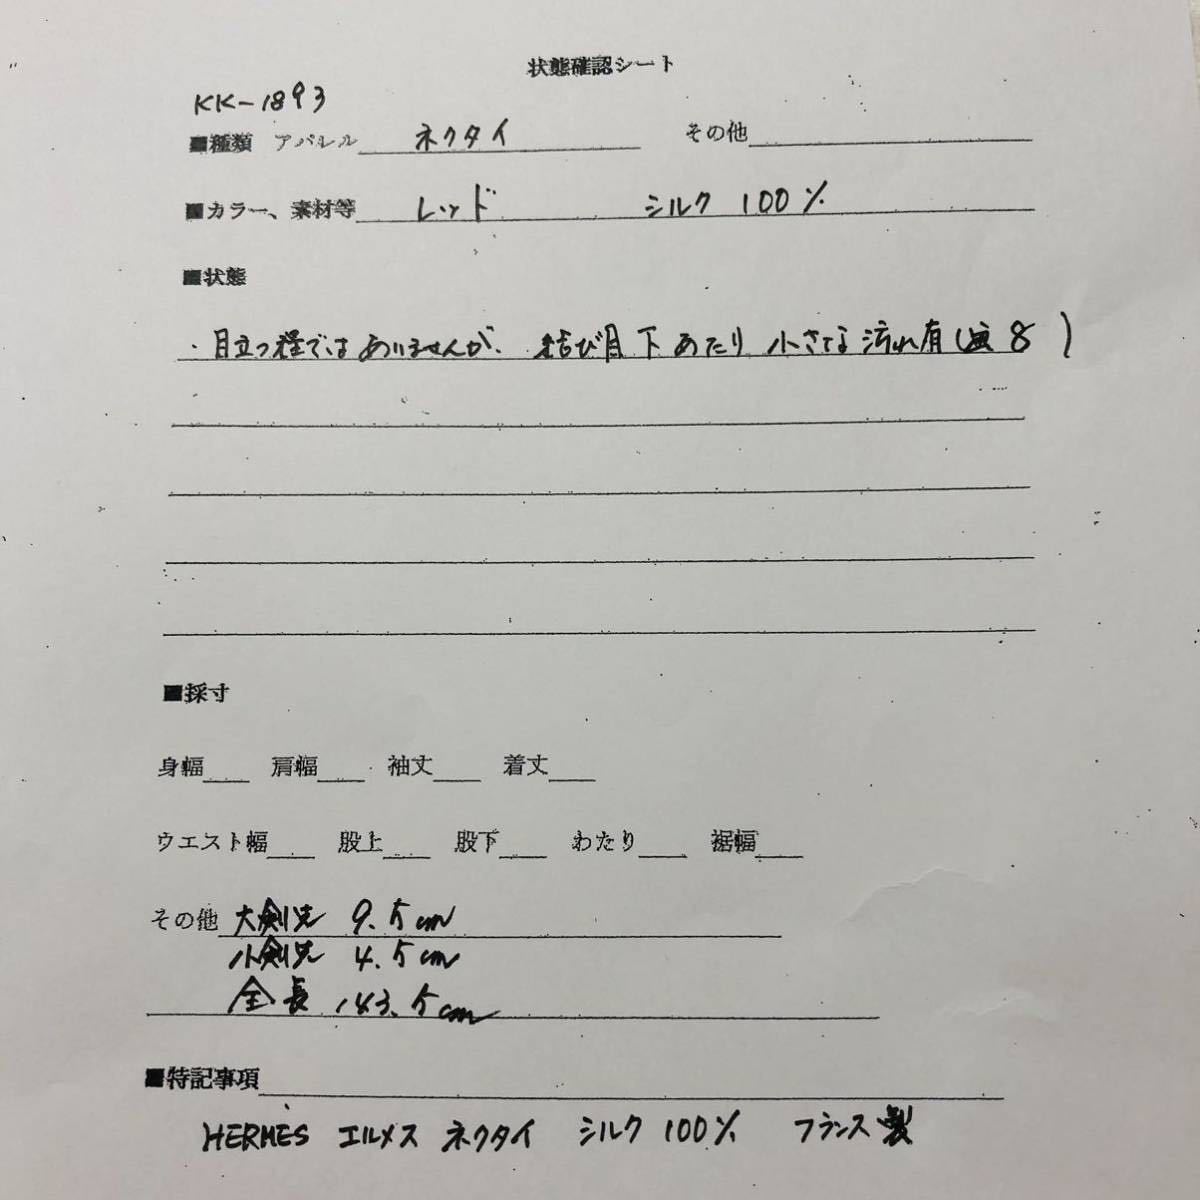 状態確認シート
KK-1893
■種類 アパレル ネクタイ その他
■カラー、素材等 レッド シルク 100%
■状態
・目立つ程ではありませんが、結び目下あたり小さな汚れ有(画8)
■採寸
身幅 肩幅 袖丈 着丈
ウエスト幅 股上 股下 わたり 裾幅
その他 大剣先 9.5cm
小剣先 4.5cm
全長 143.5cm
■特記事項
HERMES エルメス ネクタイ シルク 100% フランス製